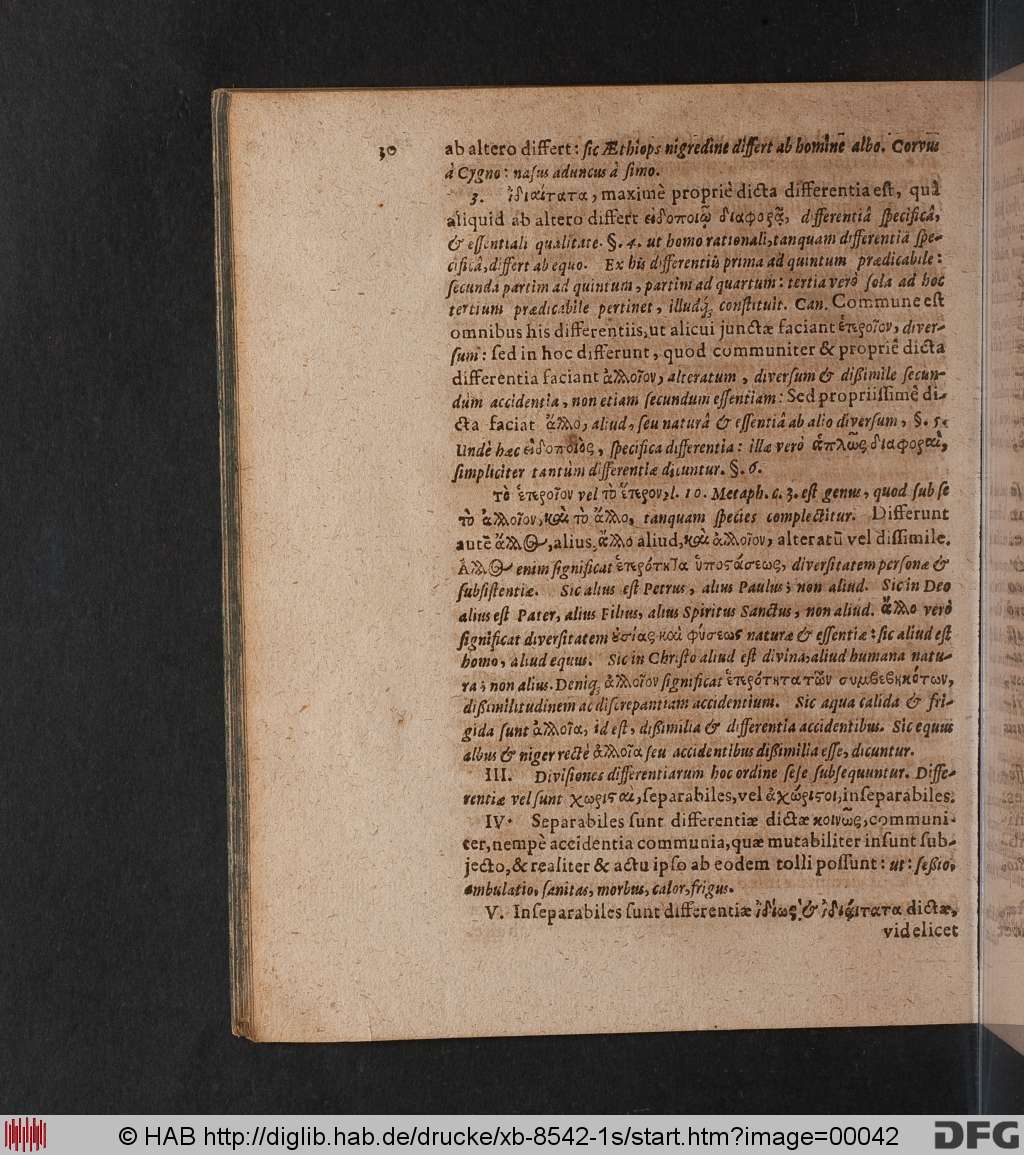 30
ab altero differt: sic Æthiops nigredine differt ab homine albo. Corvus
à Cygno: nasus aduncus à simo.
3. ἰδιαίτατα, maximè propriè dicta differentia est, quâ
aliquid ab altero differt εἰδοποιῷ διαφορᾷ, differentiâ specificâ,
& essentiali qualitate. §. 4. ut homo rationali, tanquam differentiâ spe-
cificâ, differt ab equo. Ex his differentiis prima ad quintum prædicabile:
secunda partim ad quintum, partim ad quartum: tertia verò sola ad hoc
tertium prædicabile pertinet, illudq; constituit. Can. Commune est
omnibus his differentiis, ut alicui junctæ faciant ἑτεροῖον, diver-
sum: sed in hoc differunt, quod communiter & propriè dicta
differentia faciant ἀλλοῖον, alteratum, diversum & dißimile secun-
dum accidentia, non etiam secundum essentiam: Sed propriissimè di-
cta faciat ἄλλο, aliud, seu naturâ & essentiâ ab alio diversum, §. 5.
Undè hæc εἰδοποιὸς, specifica differentia: illæ verò ἁπλῶς διαφοραὶ,
simpliciter tantùm differentiæ dicuntur. §. 6.
τὸ ἑτεροῖον vel τὸ ἕτερον, l. 10. Metaph. c. 3. est genus, quod sub se
τὸ ἀλλοῖον, καὶ τὸ ἄλλο, tanquam species complectitur. Differunt
autē ἄλλος, alius, ἄλλο aliud, καὶ ἀλλοῖον, alteratū vel dissimile.
Ἄλλος enim significat ἑτερότητα ὑποστάσεως, diversitatem personæ &
subsistentiæ. Sic alius est Petrus, alius Paulus; non aliud. Sic in Deo
alius est Pater, alius Filius, alius Spiritus Sanctus, non aliud. ἄλλο verò
significat diversitatem οὐσίας καὶ φύσεως naturæ & essentiæ: sic aliud est
homo, aliud equus. Sic in Christo aliud est divina, aliud humana natu-
ra; non alius. Deniq; ἀλλοῖον significat ἑτερότητα τῶν συμβεβηκότων,
dißimilitudinem ac discrepantiam accidentium. Sic aqua calida & fri-
gida sunt ἀλλοῖα, id est, dißimilia & differentia accidentibus. Sic equus
albus & niger rectè ἀλλοῖα seu accidentibus dißimilia esse, dicuntur.
III. Divisiones differentiarum hoc ordine sese subsequuntur. Diffe-
rentiæ vel sunt χωρισταὶ, separabiles, vel ἀχώριστοι, inseparabiles.
IV. Separabiles sunt differentiæ dictæ κοινῶς, communi-
ter, nempè accidentia communia, quæ mutabiliter insunt sub-
jecto, & realiter & actu ipso ab eodem tolli possunt: ut: seßio,
ambulatio, sanitas, morbus, calor, frigus.
V. Inseparabiles sunt differentiæ ἰδίως & ἰδιαίτατα dictæ,
videlicet
© HAB http://diglib.hab.de/drucke/xb-8542-1s/start.htm?image=00042
DFG